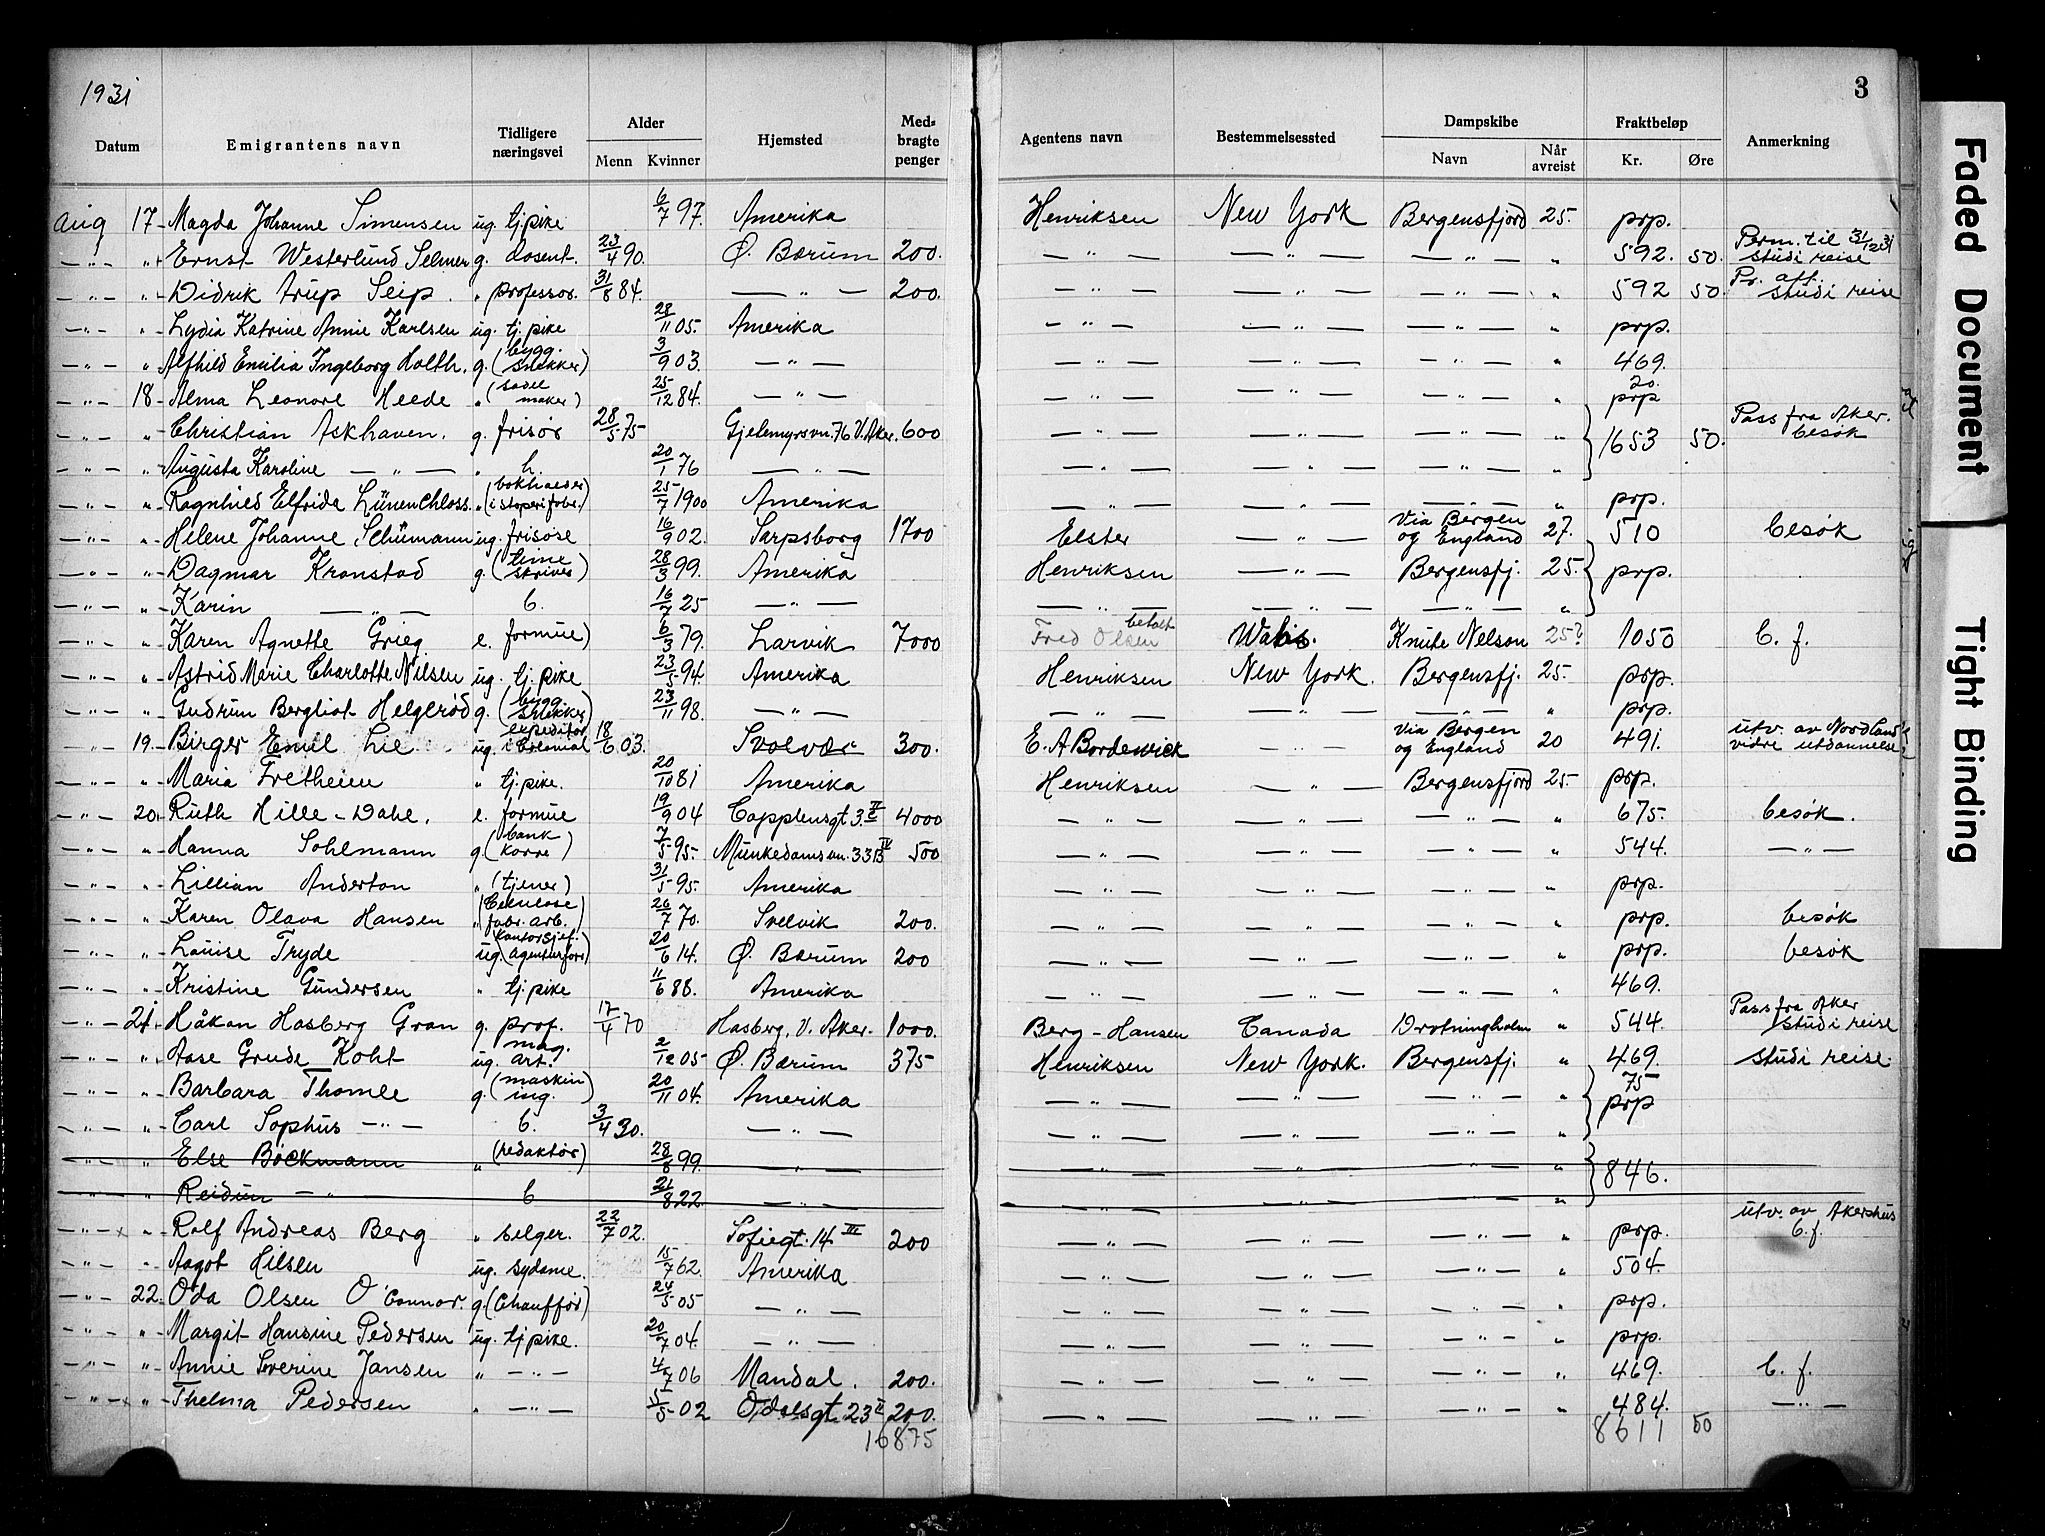 1931
3
Datum Emigrantens navn Tidligere næringsvei Alder Menn Kvinner Hjemsted Medbragte penger Agentens navn Bestemmelsessted Dampskibe Navn Når avreist Fraktbeløp Kr. Øre Anmerkning
Aug 17 Magda Johanne Simensen ug. tj.pike 6/7 97. Amerika Henriksen New York Bergensfjord 25. prp.
—"— " Ernst Westerlund Selmer g. dosent. 23/4 90. Ø. Bærum 200. —"— —"— —"— " 592. 50. Perm. til 31/12 31 studi reise
—"— " Didrik Arup Seip. " professor. 31/8 84. —"— 200. —"— —"— —"— " 592 50. Pr. att. studi reise
—"— " Lydia Katrine Annie Karlsen ug. tj.pike 28/11 05. Amerika —"— —"— —"— " prp.
—"— " Alfhild Emilia Ingeborg Holth. g. (bygg. snekker) 3/9 03. —"— —"— —"— —"— " 469.
—"— 18 Alma Leonore Heede " (sadelmaker) 25/12 84. —"— —"— —"— " 20. prp
—"— " Christian Askhaven. g. frisør 28/5 75 Gjelemyrsvn. 76 V. Aker. 600 —"— —"— —"— " 1653 50. Pass fra Aker. besøk
—"— " Augusta Karoline —"— " h. 20/1 76 —"— —"— —"— —"— "
—"— " Ragnhild Elfrida Lünenchloss. " (bokholder i støperifabr.) 25/7 1900 Amerika —"— —"— —"— " prp.
—"— " Helene Johanne Schümann ug. frisøse 16/9 02. Sarpsborg 1700 Elster —"— Via Bergen og England 27. 510 besøk
—"— " Dagmar Kronstad g. (time skriver) 28/3 99. Amerika Henriksen —"— Bergensfj. 25. prp.
—"— " Karin —"— b. 16/7 25 —"— —"— —"— —"— "
—"— " Karen Agnette Grieg e. formue) 6/3 79. Larvik 7000 Fred Olsen betalt Knute Nelson 25? 1050 b. f.
—"— " Astrid Marie Charlotte Nilsen ug. tj.pike 23/5 94. Amerika Henriksen New York. Bergensfj. 25. prp.
—"— " Gudrun Bergliot Helgerød g. (bygg. snekker) 23/11 98. —"— —"— —"— —"— " prp.
—"— 19 Birger Emil Lie ug. expeditør i kolonial 18/6 03. Svolvær 300. E. A Bordewick —"— Via Bergen og England 20 491. utv. av Nordland vidre utdannelse
—"— " Maria Fretheim " tj.pike. 20/10 81 Amerika Henriksen —"— Bergensfjord 25. prp.
—"— 20. Ruth Hille-Dahl. e. formue 19/9 04 Cappelensgt 3 II 4000 —"— —"— —"— " 675. besøk.
—"— " Hanna Sohlmann g. (bank korre) 7/5 95. Munkedamsvn. 33B IV 500 —"— —"— —"— " 544. —"—
—"— " Lillian Anderton " (tjener) 31/5 95. Amerika —"— —"— —"— " prp.
—"— " Karen Olava Hansen " (Cellulose fabr. arb.) 26/7 70. Svelvik 200. —"— —"— —"— " prp. besøk
—"— " Louise Tryde ug. (Kontorsjef. agenturforr) 20/6 14. Ø. Bærum 200 —"— —"— —"— " prp. besøk
—"— " Kristine Gundersen " tj.pike 11/6 88. Amerika —"— —"— —"— " 469.
—"— 21. Håkon Hasberg Gran g. prof. 17/4 70 Hasberg, V. Aker. 1000. Berg-Hansen Canada Drotningholm " 544. Pass fra Aker studi reise
—"— " Aase Grude Koht ug. mag. art. 2/12 05 Ø. Bærum 375 Henriksen New York. Bergensfj. " 469. studi reise.
—"— " Barbara Thomle g. (maskin ing.) 20/11 04. Amerika —"— —"— —"— " 75 prp
—"— " Carl Sophus —"— b. 3/4 30. —"— —"— —"— —"— "
—"— " Else Böckmann " (redaktør) 28/8 99. —"— —"— —"— —"— " 846.
—"— " Reidun —"— b 21/8 22. —"— —"— —"— —"— "
—"— " Rolf Andreas Berg " selger. 22/7 02. Sofiegt. 14 III 200 —"— —"— —"— " prp. utv. av Akershus b.f.
—"— " Aagot Hilsen ug. sydame. 15/7 62. Amerika —"— —"— —"— " 504.
—"— 22. Oda Olsen O'Connor. g. (Chauffør) 24/5 05 —"— —"— —"— —"— " prp.
—"— " Margit Hansine Pedersen ug. tj.pike. 20/7 04. —"— —"— —"— —"— " prp.
—"— " Annie Severine Jansen " —"— 4/7 06 Mandal. 200. —"— —"— —"— " 469. b. f.
—"— " Thelma Pedersen " —"— 5/5 02 Odalsgt. 23 II 200. —"— —"— —"— " 484. —"—
16875 8611 50
Faded Document
Tight Binding